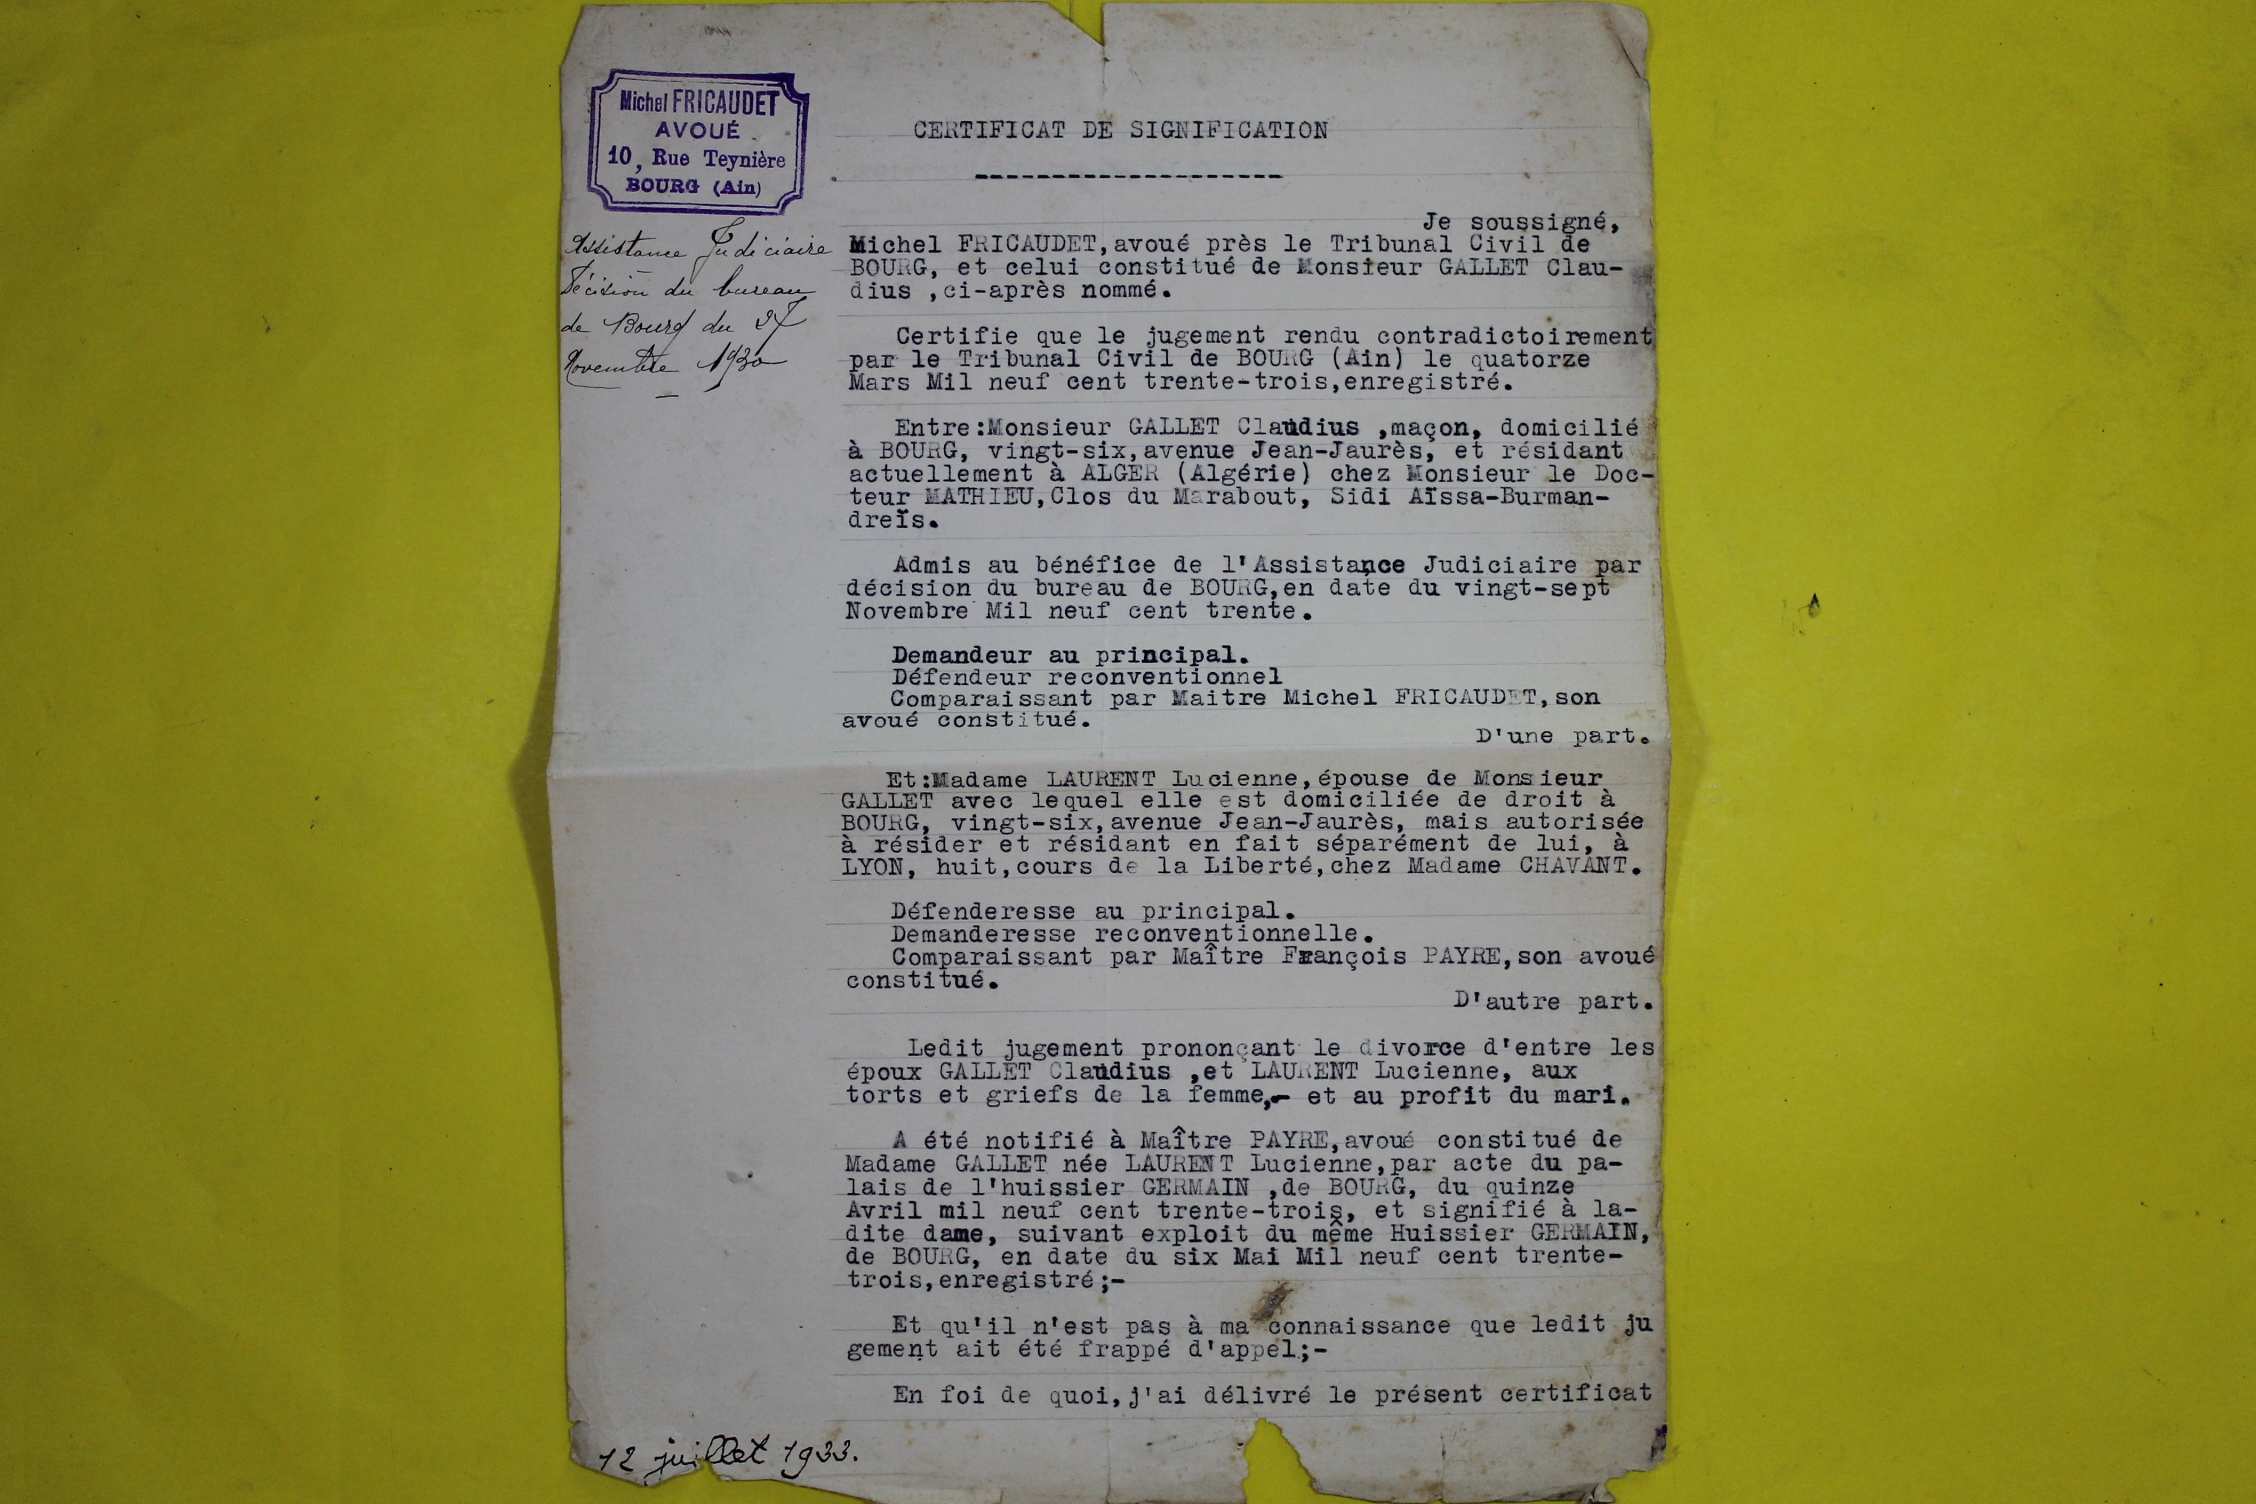 Michel FRICAUDET
AVOUÉ
10, Rue Teynière
BOURG (Ain)
Assistance Judiciaire
Décision du bureau
de Bourg du 27
Novembre 1930
CERTIFICAT DE SIGNIFICATION
--------------------
Je soussigné,
Michel FRICAUDET,avoué près le Tribunal Civil de
BOURG, et celui constitué de Monsieur GALLET Clau-
dius ,ci-après nommé.
Certifie que le jugement rendu contradictoirement
par le Tribunal Civil de BOURG (Ain) le quatorze
Mars Mil neuf cent trente-trois,enregistré.
Entre:Monsieur GALLET Claudius ,maçon, domicilié
à BOURG, vingt-six,avenue Jean-Jaurès, et résidant
actuellement à ALGER (Algérie) chez Monsieur le Doc-
teur MATHIEU,Clos du Marabout, Sidi Aïssa-Burman-
dreïs.
Admis au bénéfice de l'Assistance Judiciaire par
décision du bureau de BOURG,en date du vingt-sept
Novembre Mil neuf cent trente.
Demandeur au principal.
Défendeur reconventionnel
Comparaissant par Maitre Michel FRICAUDET,son
avoué constitué.
D'une part.
Et:Madame LAURENT Lucienne,épouse de Monsieur
GALLET avec lequel elle est domiciliée de droit à
BOURG, vingt-six,avenue Jean-Jaurès, mais autorisée
à résider et résidant en fait séparément de lui, à
LYON, huit,cours de la Liberté,chez Madame CHAVANT.
Défenderesse au principal.
Demanderesse reconventionnelle.
Comparaissant par Maître François PAYRE,son avoué
constitué.
D'autre part.
Ledit jugement prononçant le divorce d'entre les
époux GALLET Claudius ,et LAURENT Lucienne, aux
torts et griefs de la femme,- et au profit du mari.
A été notifié à Maître PAYRE,avoué constitué de
Madame GALLET née LAURENT Lucienne,par acte du pa-
lais de l'huissier GERMAIN ,de BOURG, du quinze
Avril mil neuf cent trente-trois, et signifié à la-
dite dame, suivant exploit du même Huissier GERMAIN,
de BOURG, en date du six Mai Mil neuf cent trente-
trois,enregistré;-
Et qu'il n'est pas à ma connaissance que ledit ju
gement ait été frappé d'appel;-
En foi de quoi,j'ai délivré le présent certificat
12 juillet 1933.